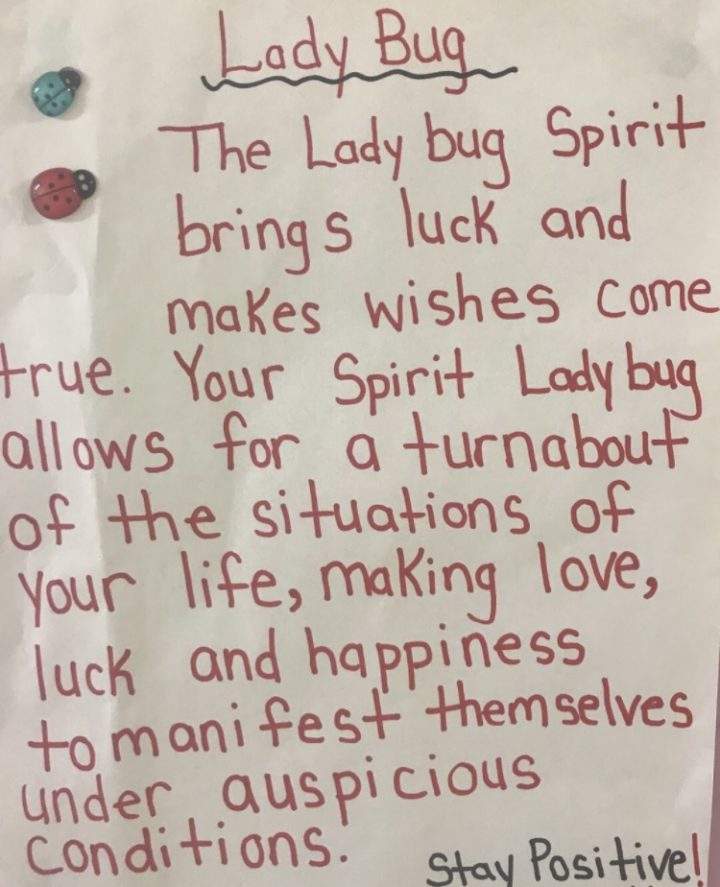 Lady Bug
The Lady bug Spirit
brings luck and
makes wishes come
true. Your Spirit Lady bug
allows for a turnabout
of the situations of
your life, making love,
luck and happiness
to manifest themselves
under auspicious
conditions.
Stay Positive!